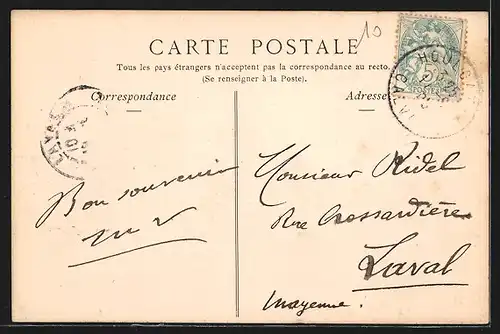 10
CARTE POSTALE
Tous les pays étrangers n'acceptent pas la correspondance au recto.
(Se renseigner à la Poste).
Correspondance
Adresse
Bon souvenir
Monsieur Ridel
Rue Crossardière
Laval
Mayenne.
LAVAL
POSTES